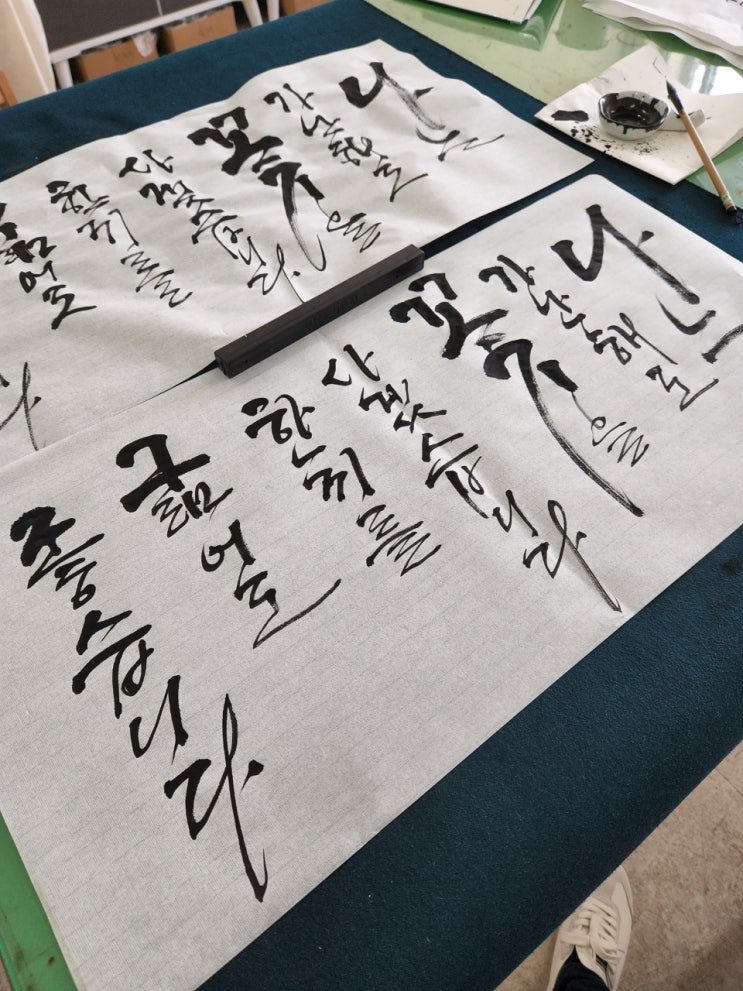 나는
가난해도
꽃을
사겠습니다
한끼를
굶어도
나는
가난해도
꽃을
사겠습니다
한끼를
굶어도
좋습니다